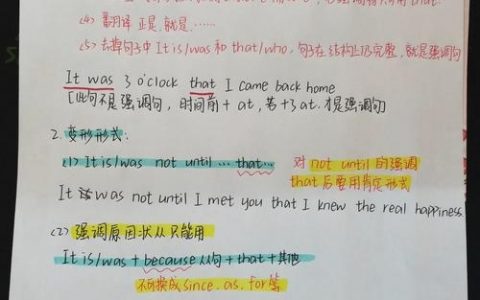 (4) 翻译 正是, 就是……
(5) 去掉句子中 It is/was 和 that/who, 句子在结构上仍完整, 就是强调句
It was 3 o'clock that I came back home
[此句不是强调句, 时间前+at, 若+了at. 才是强调句]
2. 变形形式:
(1) It is/was not until … that… 对 not until 的强调
that 后要用肯定形式
It was not until I met you that I knew the real happiness
(2) 强调原因状从只能用
It is/was + because 从句 + that + 其他
不可换成 since. as. for等